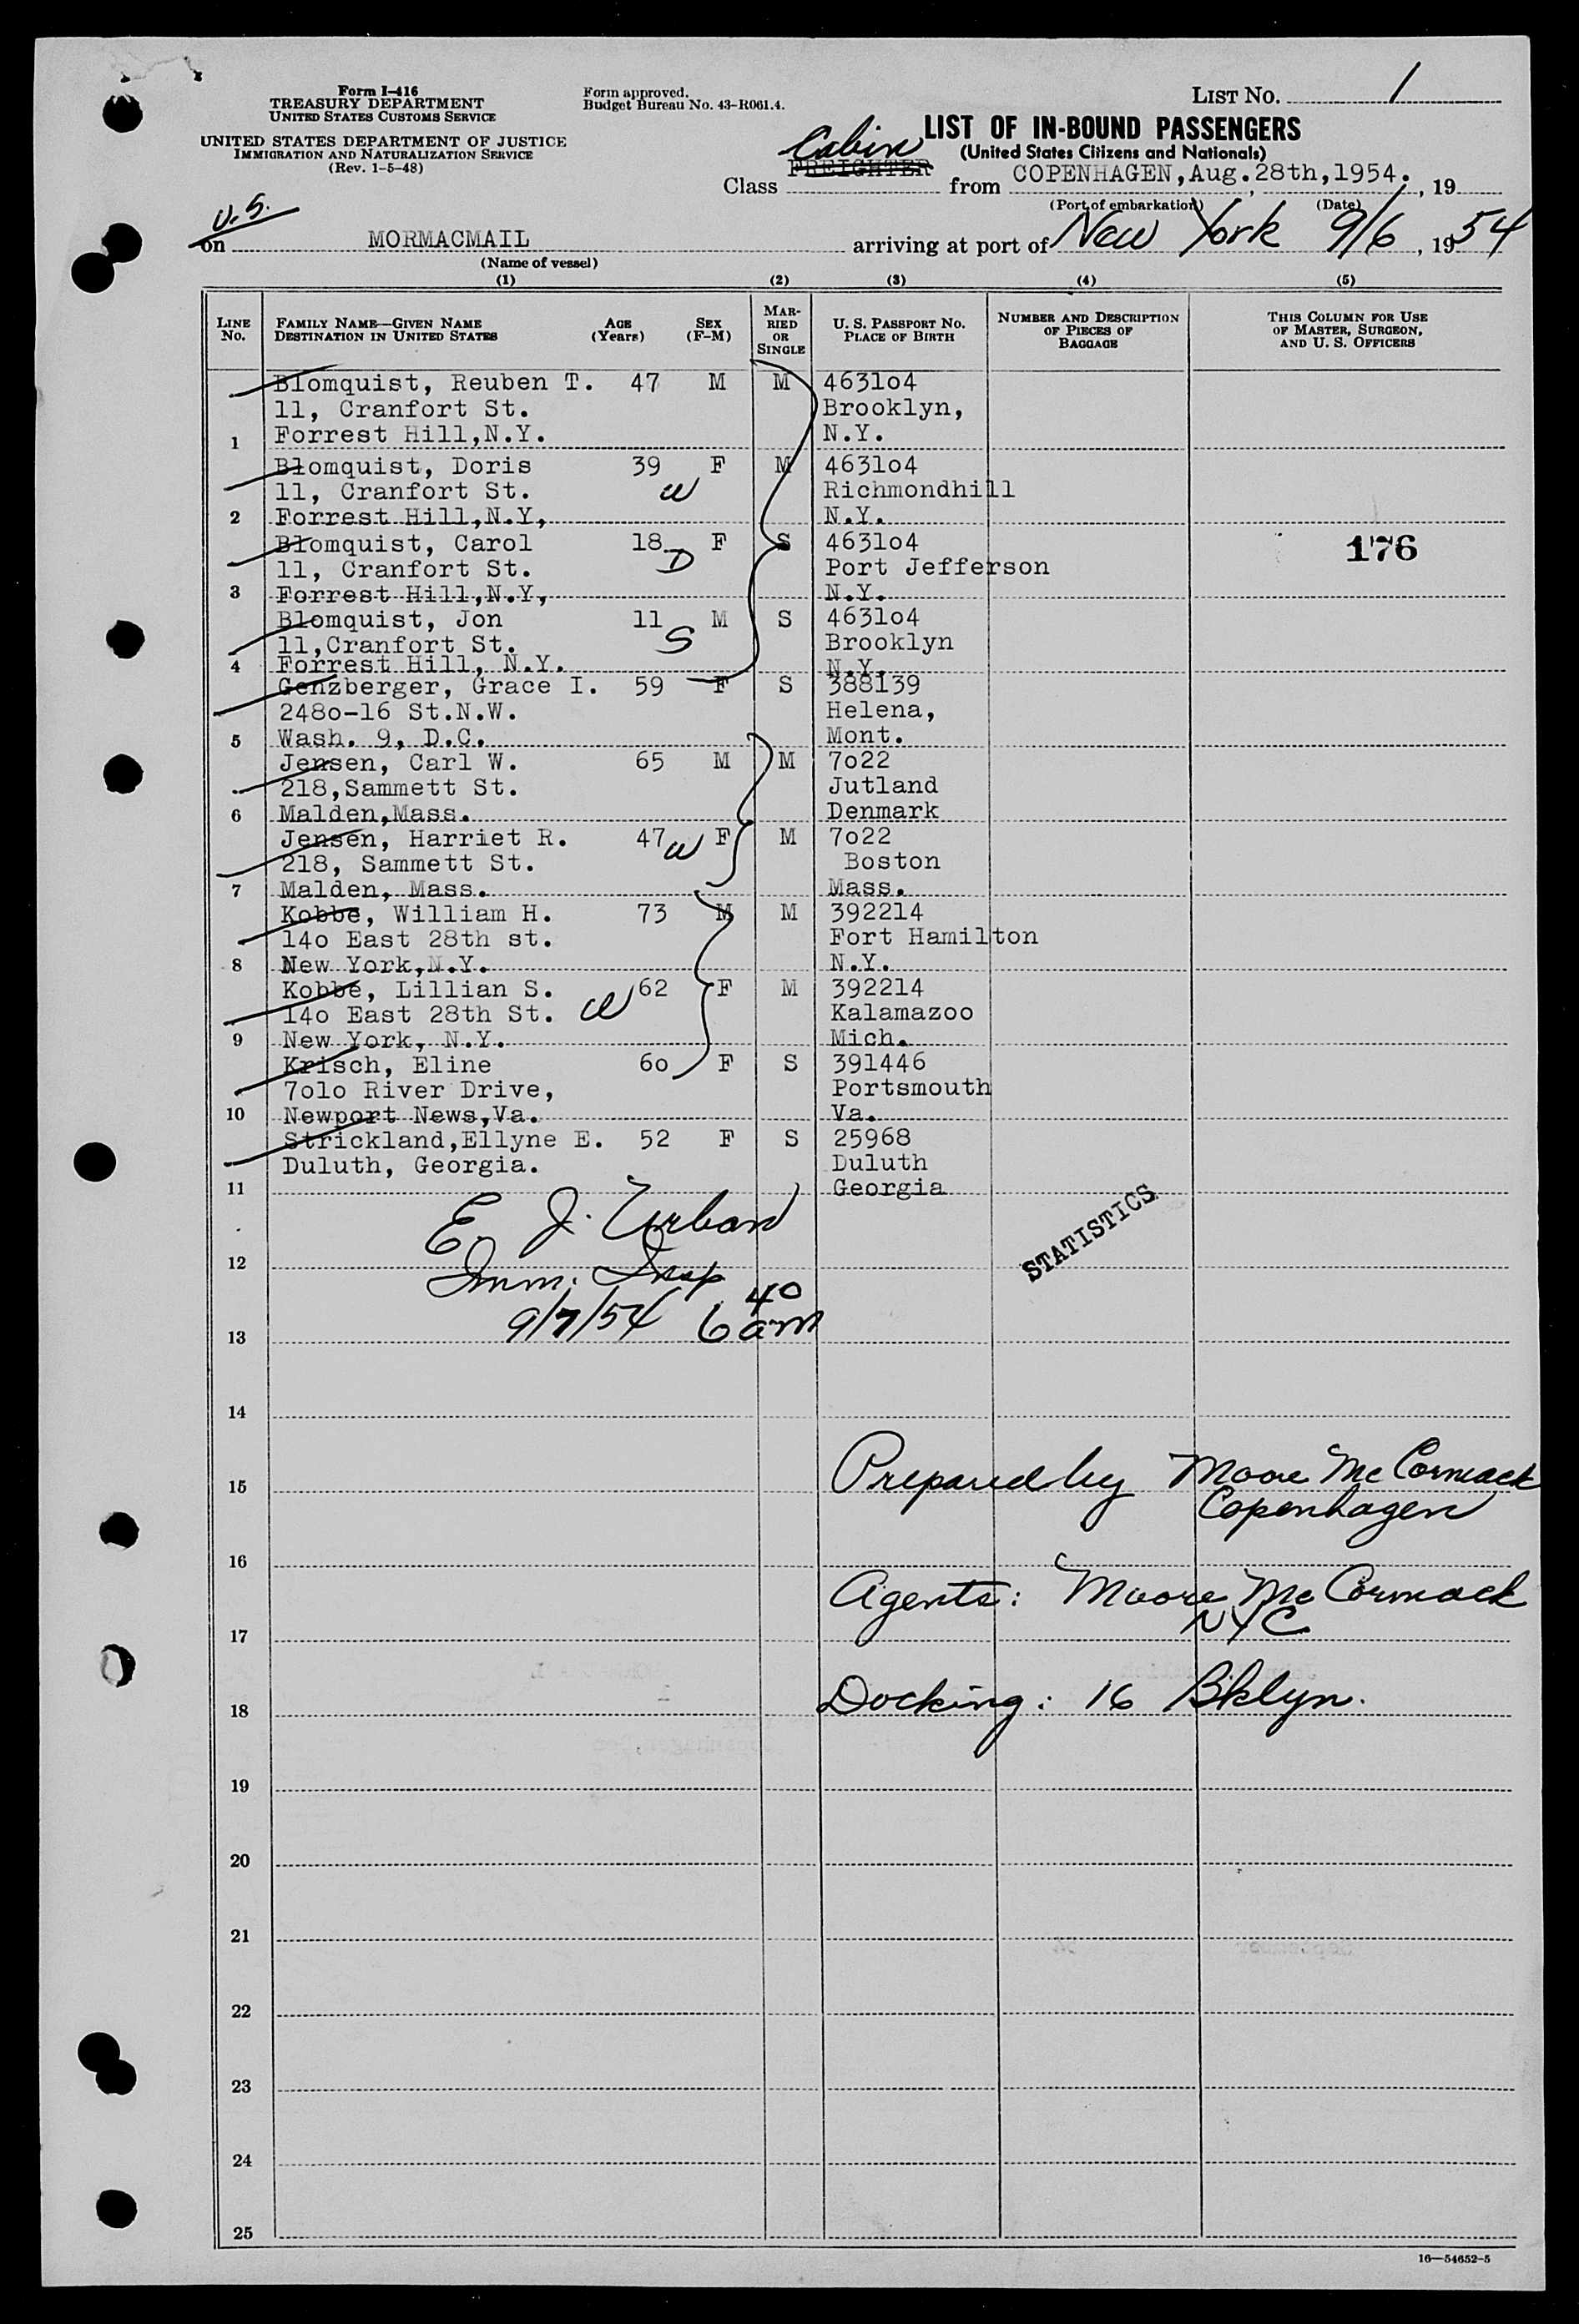 Form I-416
TREASURY DEPARTMENT
UNITED STATES CUSTOMS SERVICE
UNITED STATES DEPARTMENT OF JUSTICE
IMMIGRATION AND NATURALIZATION SERVICE
(Rev. 1-5-48)
Form approved.
Budget Bureau No. 43-R061.4.
LIST NO. 1
LIST OF IN-BOUND PASSENGERS
(United States Citizens and Nationals)
Cabin
Class FREIGHTER from COPENHAGEN, Aug. 28th, 1954. , 19
(Port of embarkation) (Date)
U.S.
on MORMACMAIL arriving at port of New York 9/6, 1954
(Name of vessel)
(1) (2) (3) (4) (5)
LINE NO. FAMILY NAME—GIVEN NAME DESTINATION IN UNITED STATES AGE (Years) SEX (F-M) MARRIED OR SINGLE U. S. PASSPORT NO. PLACE OF BIRTH NUMBER AND DESCRIPTION OF PIECES OF BAGGAGE THIS COLUMN FOR USE OF MASTER, SURGEON, AND U. S. OFFICERS
Blomquist, Reuben T. 47 M M 4631o4
11, Cranfort St. Brooklyn,
1 Forrest Hill,N.Y. N.Y.
Blomquist, Doris 39 F M 4631o4
11, Cranfort St. W Richmondhill
2 Forrest Hill,N.Y, N.Y.
Blomquist, Carol 18 F S 4631o4 176
11, Cranfort St. D Port Jefferson
3 Forrest Hill,N.Y, N.Y.
Blomquist, Jon 11 M S 4631o4
11,Cranfort St. S Brooklyn
4 Forrest Hill, N.Y. N.Y.
Genzberger, Grace I. 59 F S 388139
248o-16 St.N.W. Helena,
5 Wash. 9, D.C. Mont.
Jensen, Carl W. 65 M M 7o22
218,Sammett St. Jutland
6 Malden,Mass. Denmark
Jensen, Harriet R. 47 W F M 7o22
218, Sammett St. Boston
7 Malden, Mass. Mass.
Kobbe, William H. 73 M M 392214
14o East 28th st. Fort Hamilton
8 New York,N.Y. N.Y.
Kobbe, Lillian S. W 62 F M 392214
14o East 28th St. Kalamazoo
9 New York, N.Y. Mich.
Krisch, Eline 6o F S 391446
7o1o River Drive, Portsmouth
10 Newport News,Va. Va.
Strickland,Ellyne E. 52 F S 25968
Duluth, Georgia. Duluth
11 Georgia
E. J. Urban
STATISTICS
12 Imm. Insp
13 9/7/54 6 40 am
14
15 Prepared by Moore McCormack
Copenhagen
16
Agents: Moore McCormack
17 NYC
18 Docking: 16 Bklyn.
19
20
21
22
23
24
25
16—54652-5